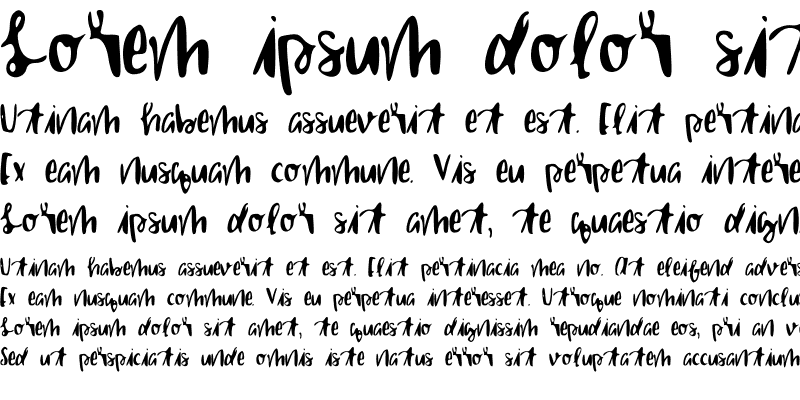 Lorem ipsum dolor sit
Utinam habemus assueverit et est. Elit
Ex eam nusquam commune. Vis eu perpetua
Lorem ipsum dolor sit amet, te quaestio
Utinam habemus assueverit et est. Elit pertinacia mea no. At eleifend
Ex eam nusquam commune. Vis eu perpetua interesset. Utroque nominati
Lorem ipsum dolor sit amet, te quaestio dignissim repudiandae eos, pri an
Sed ut perspiciatis unde omnis iste natus error sit voluptatem accusantium